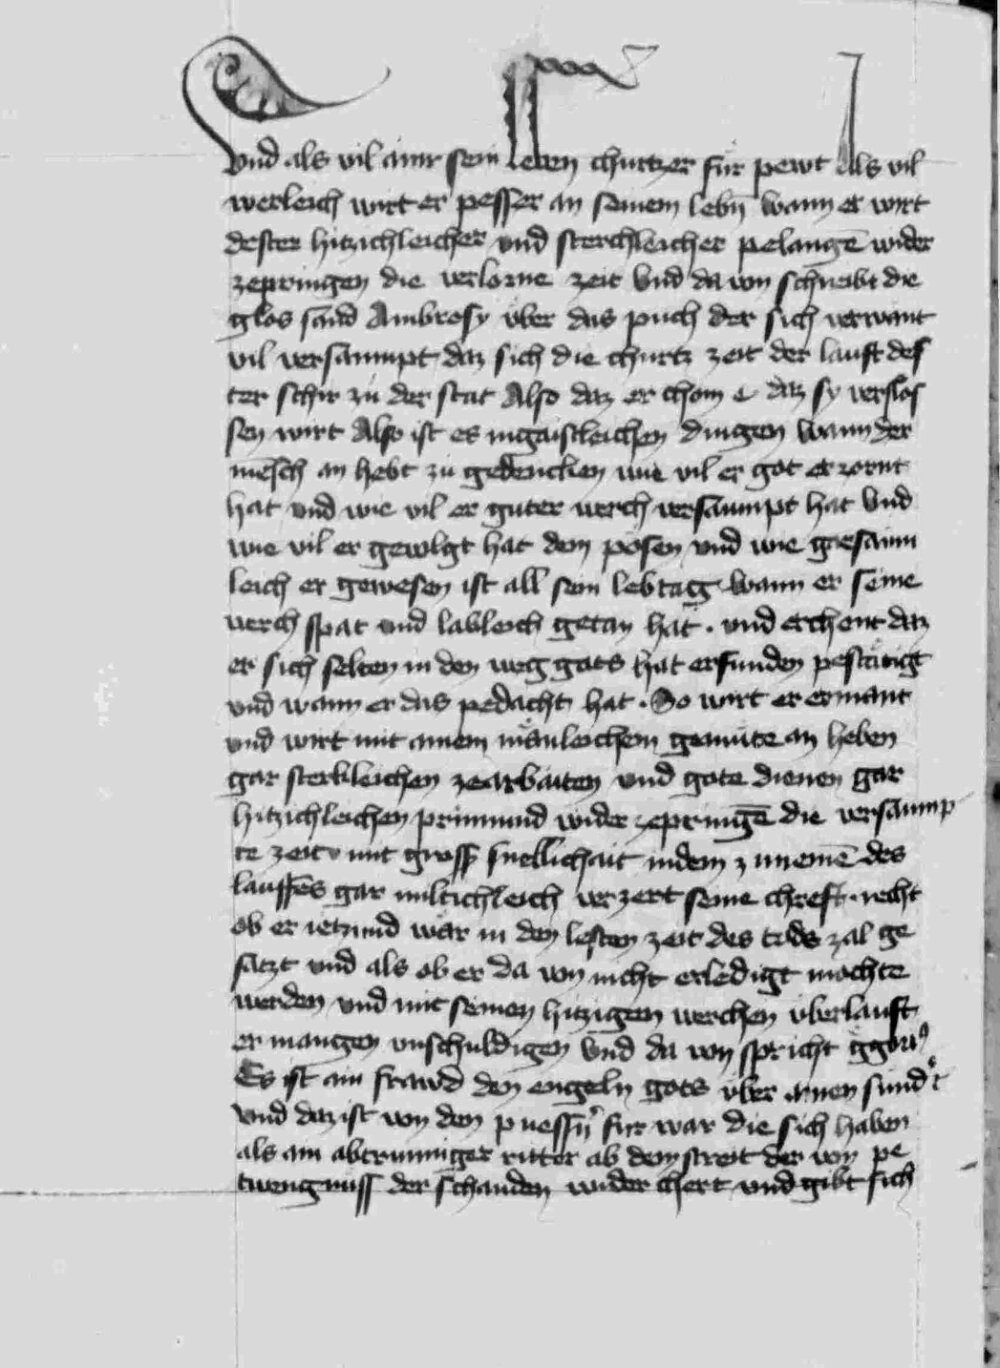 Vnd als vil ainr sein leben churtzer für pewt Als vil
werleich wirt er pesser an seinem lebn̄ wann er wirt
dester hitzichleicher vnd sterchleicher pelangē wider
zepringen die verlorne zeit Vnd da von schreibt die
glos sand Ambrosy vber das puch der sich verwänt
vil versaumpt daz sich die churtz zeit der lauft des
ter schir zu der stat Also daz er chom e daz sy verslos
sen wirt Also ist es ingaistleichen dingen wann der
mēsch an hebt zu gedencken wie vil er got erzornt
hat vnd wie vil er guter werch versaumpt hat Vnd
wie vil er geuolgt hat dem pösen vnd wie gresaim
leich er gewesen ist all sein lebtag wann er seine
werch spat vnd lableich getan hat . vnd erchent daz
er sich selten in den weg gots hat erfunden pestätigt
vnd wann er das pedacht hat . So wirt er ermant
vnd wirt mit ainem mänleichem gemüte an heben
gar sterkleichen zearbaiten vnd gote dienen gar
hitzichleichen prinnund wider zepringē die versaump
te zeit mit gross snellichait indem zunemē des
lauffes gar miltichleich verzert seine chreft . recht
ob er ietzund wär in den lesten zeit des tods zal ge
satzt vnd als ob er da von nicht erledigt mochte
werden vnd mit seinen hitzigen werchen vberlauft
er manigen vnschuldigen Vnd da von spricht ggori9
Es ist ain frawd den engeln gots vber ainen sund't
vnd daz ist von den puessn̄ fur war die sich haben
als ain abtrunniger ritter ab dem streit der von pe
twengnuss der schanden wider chert vnd gibt sich